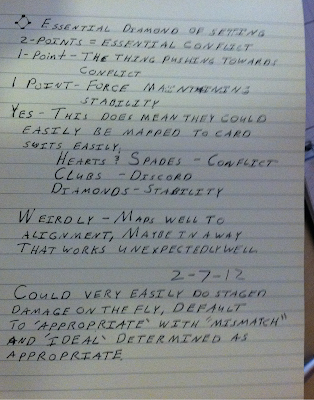 Essential Diamond of Setting
2-Points = Essential Conflict
1-Point - The thing pushing towards
Conflict
1 Point - Force Maintaining
Stability
Yes - This does mean they could
easily be mapped to card
suits easily.
Hearts & Spades - Conflict
Clubs - Discord
Diamonds - Stability
Weirdly - Maps well to
alignment, maybe in a way
that works unexpectedly well.
2-7-12
Could very easily do staged
damage on the fly, default
to "appropriate" with "mismatch"
and "ideal" determined as
appropriate.